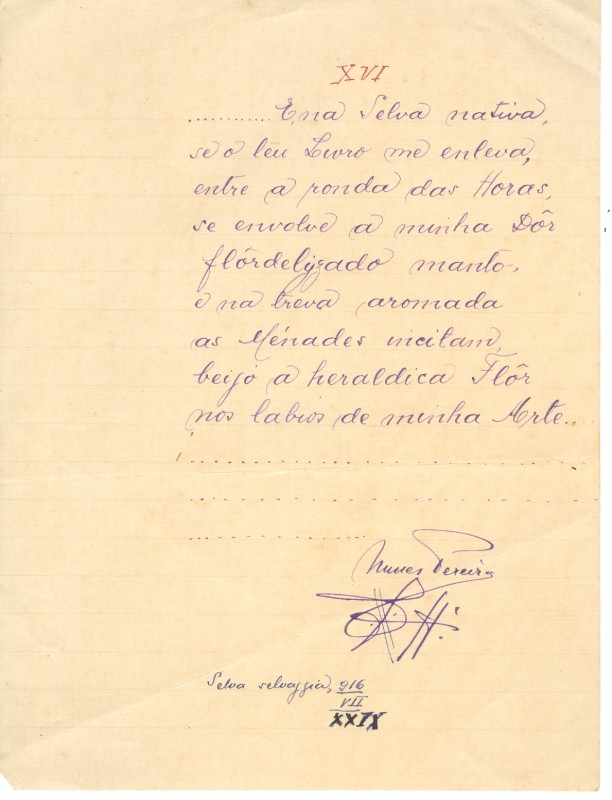 XVI
............ E, na Selva nativa,
se o teu Livro me enleva,
entre a ronda das Horas,
se envolve a minha Dôr
flôrdelyzado manto,
e na treva aromada
as Ménades incitam,
beijo a heraldica Flôr
nos labios de minha Arte...
Nunes Pereira
Selva selvaggia, 916
VII
XXIX